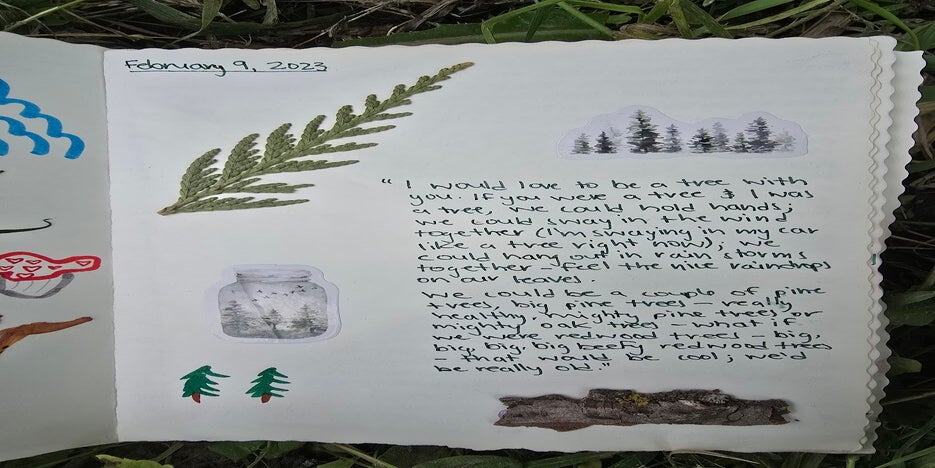 February 9, 2023
"I would love to be a tree with
you. If you were a tree & I was
a tree, we could hold hands;
we could sway in the wind
together (I'm swaying in my car
like a tree right now); we
could hang out in rain storms
together - feel the nice raindrops
on our leaves.
We could be a couple of pine
trees, big pine trees - really
healthy, mighty pine trees, or
mighty oak trees - what if
we were redwood trees - big,
big, big, big beefy redwood trees
- that would be cool; we'd
be really old."